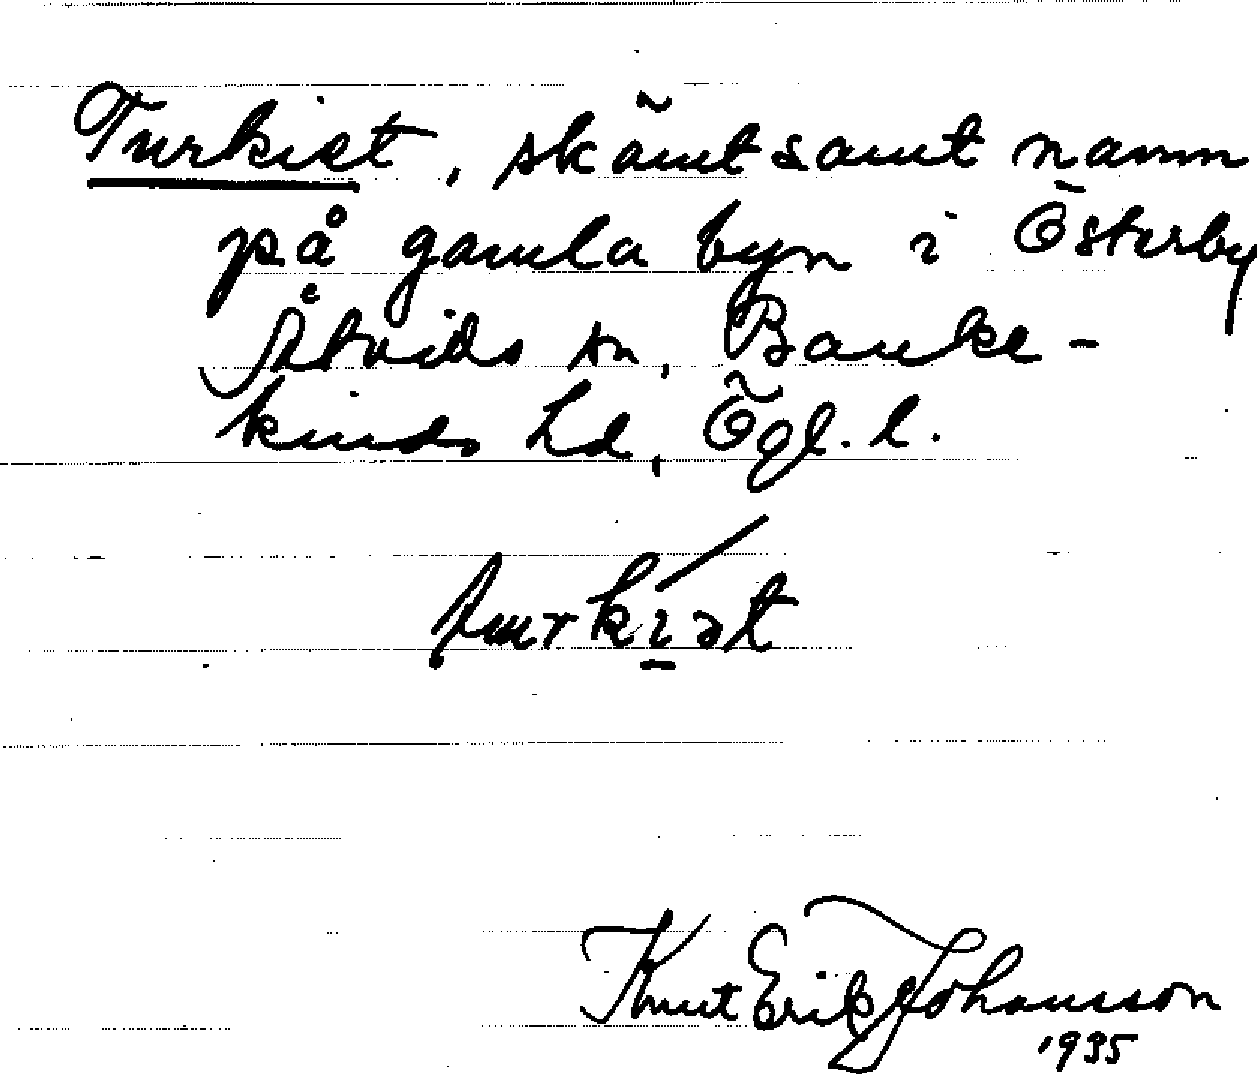 Turkiet, skämtsamt namn
på gamla byn i Österby
Åtvids sn, Banke-
kinds hd, Ögl. l.
Knut Erik Johansson
1935